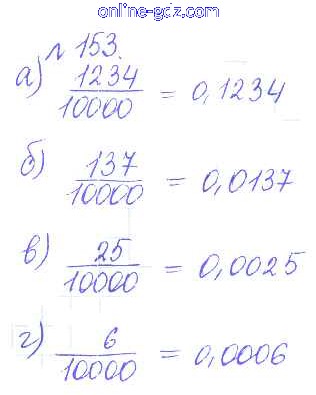 online-gdz.com
№ 153.
а) 1234/10000 = 0,1234
б) 137/10000 = 0,0137
в) 25/10000 = 0,0025
г) 6/10000 = 0,0006